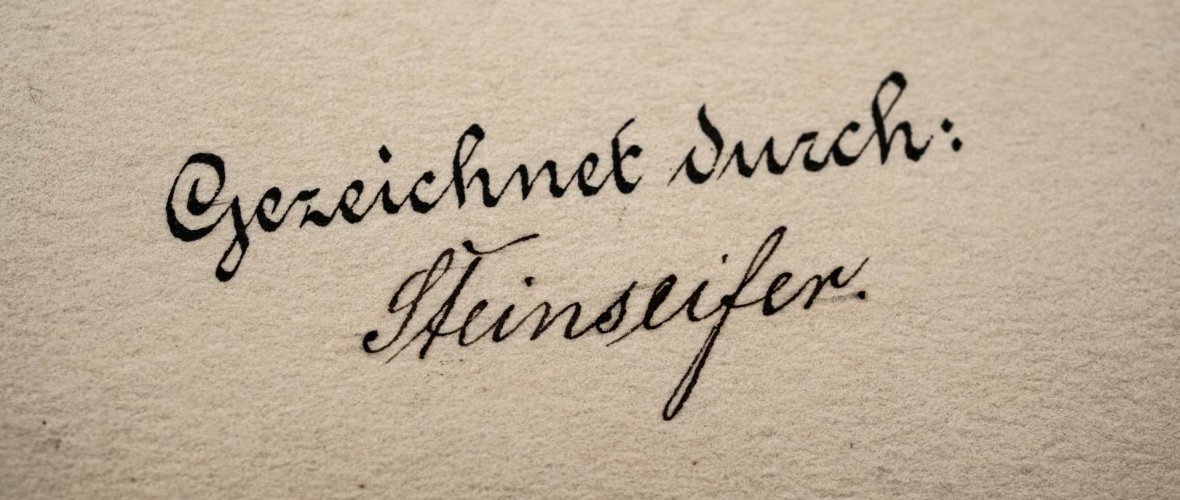 Gezeichnet durch:
Steinseifer.